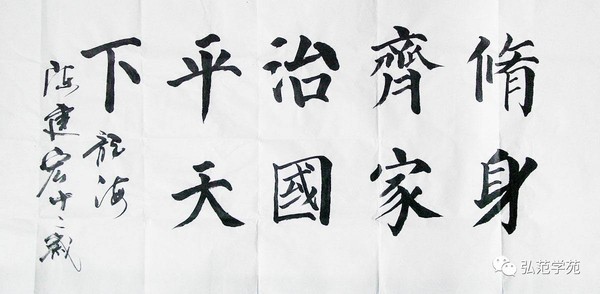 脩身
齊家
治國
平天
下
龍海
陈建宏十二歲
弘范学苑